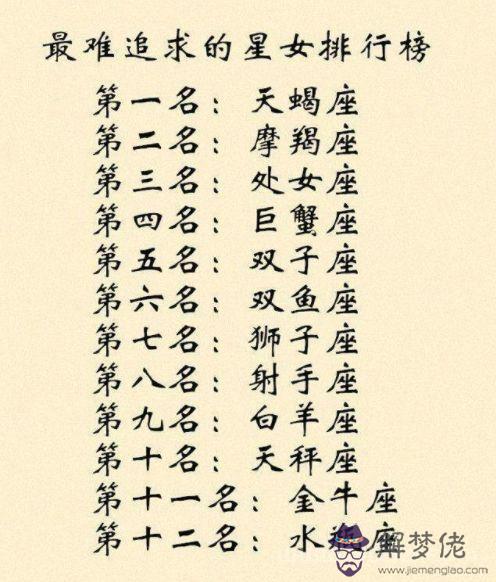 最难追求的星女排行榜
第一名：天蝎座
第二名：摩羯座
第三名：处女座
第四名：巨蟹座
第五名：双子座
第六名：双鱼座
第七名：狮子座
第八名：射手座
第九名：白羊座
第十名：天秤座
第十一名：金牛座
第十二名：水瓶座
解梦佬
www.jiemenglao.com